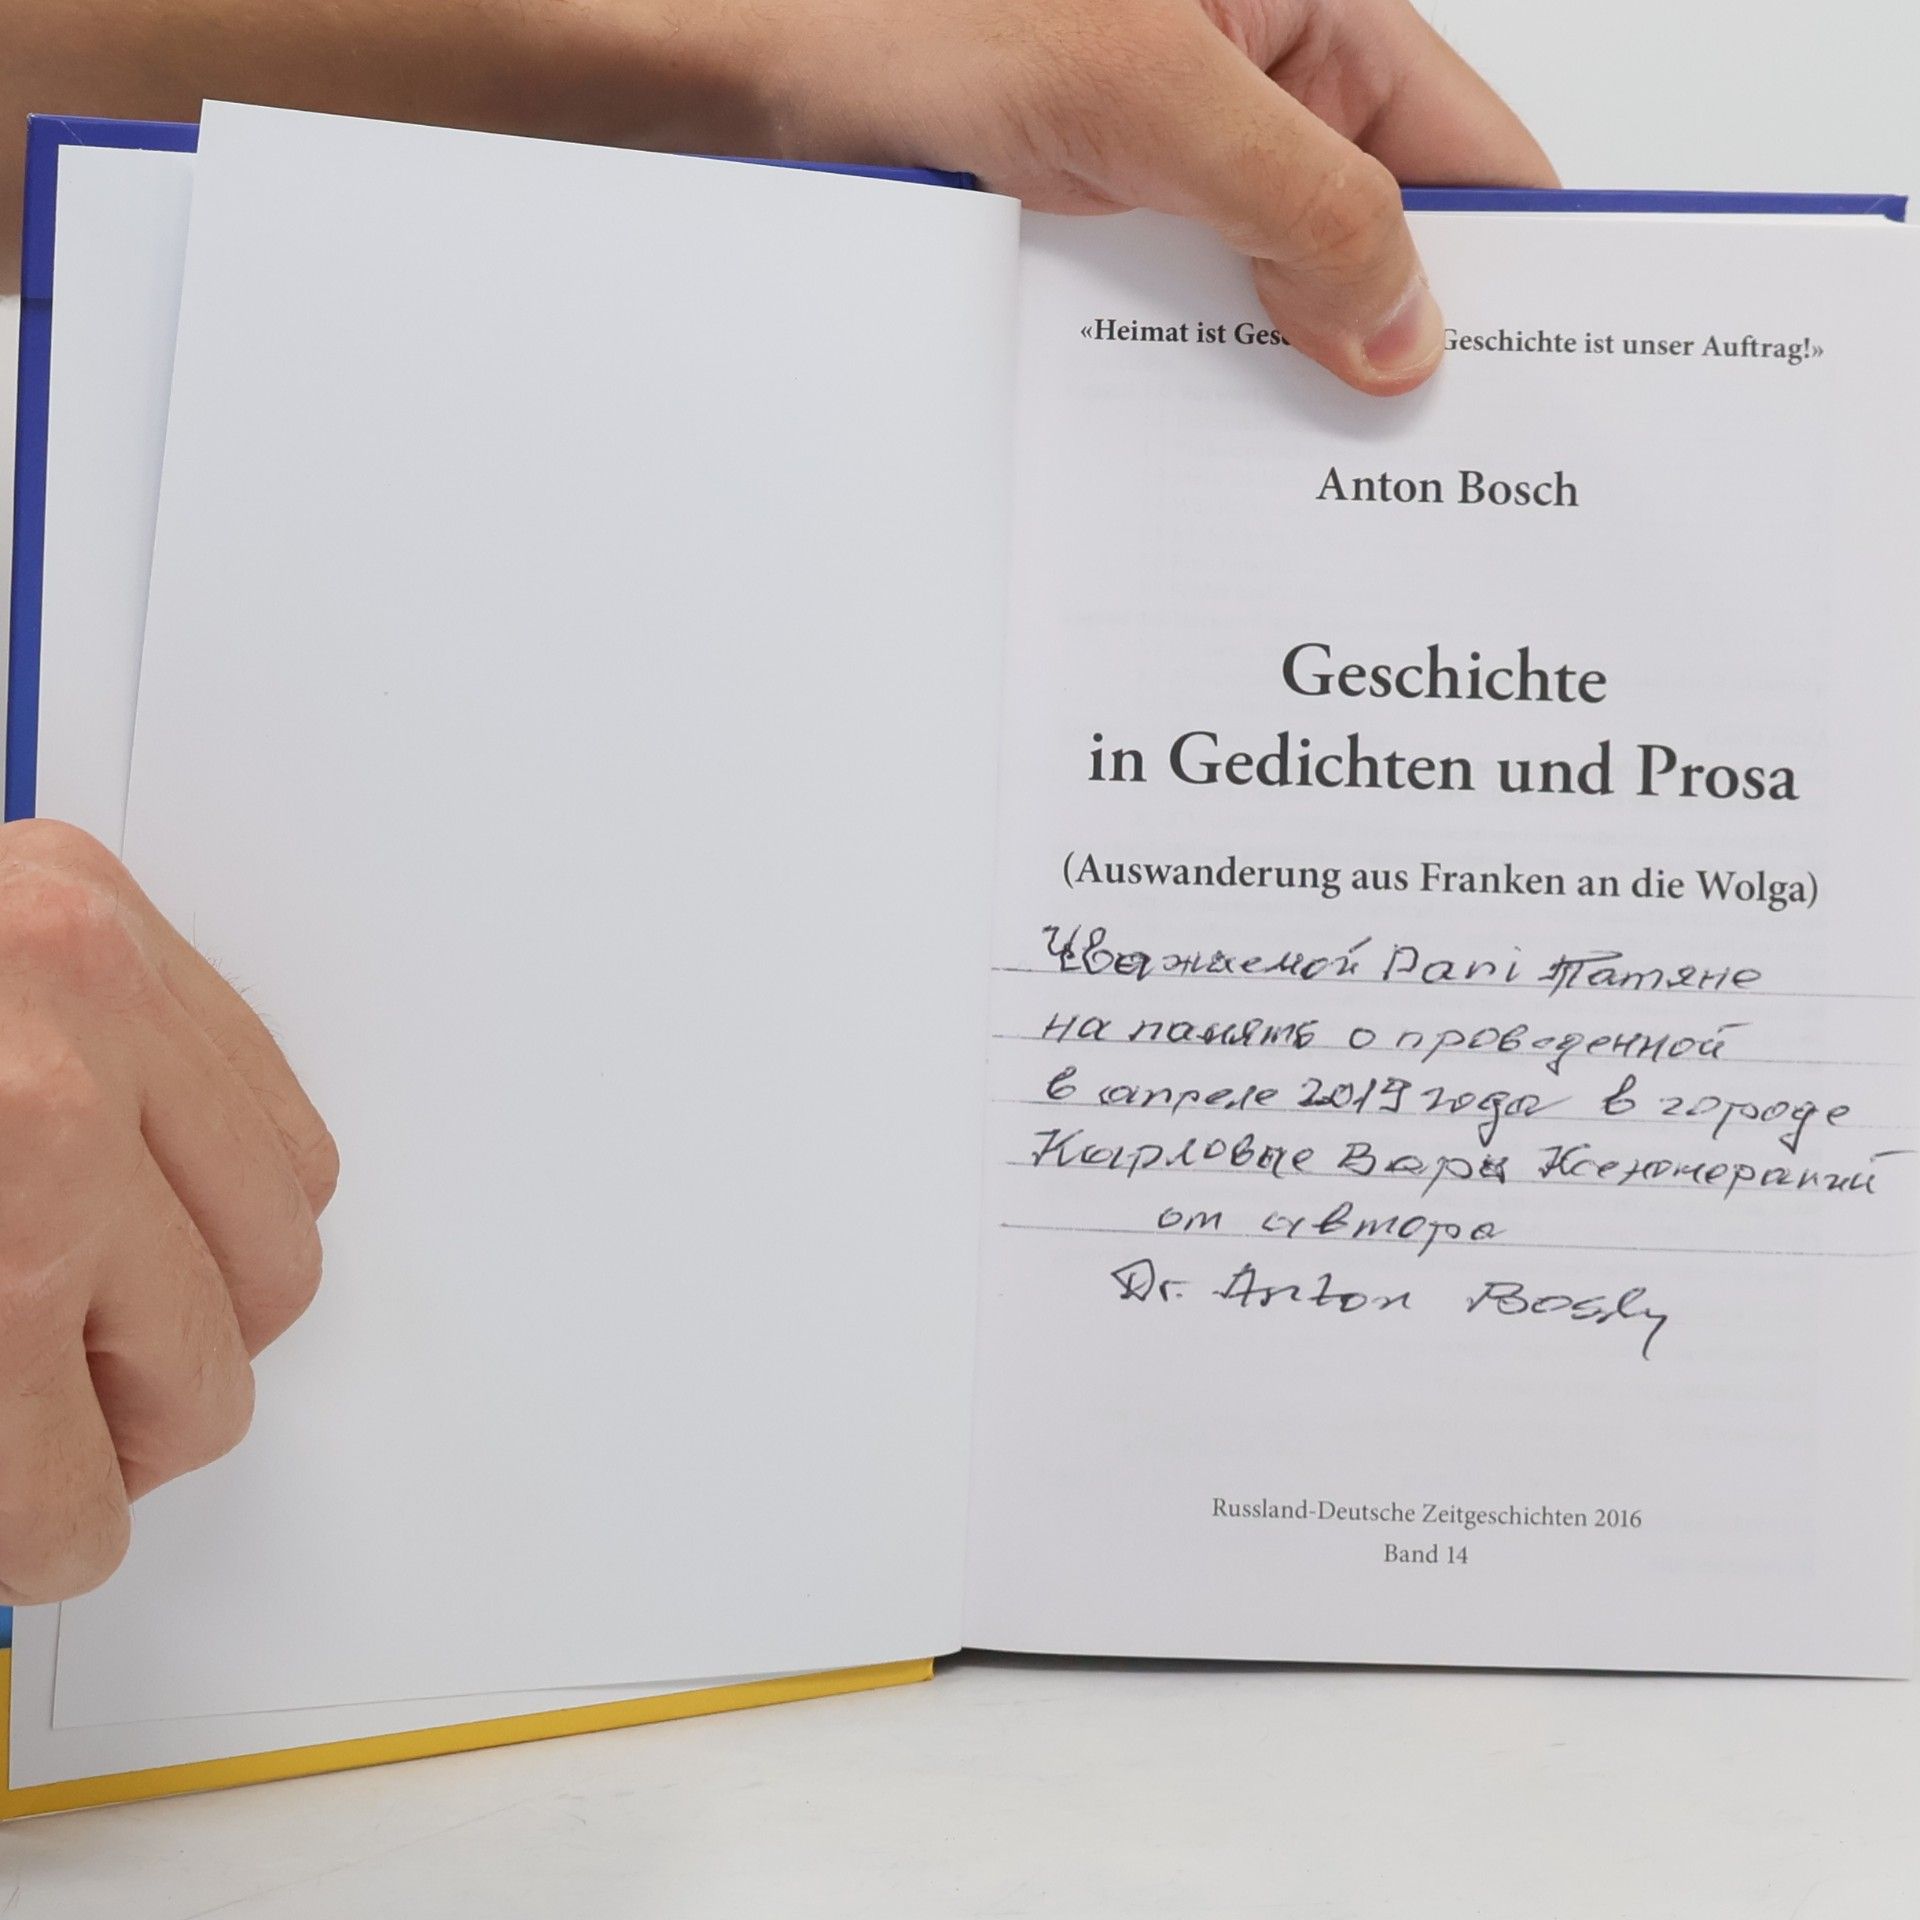 «Heimat ist Ges Geschichte ist unser Auftrag!»
Anton Bosch
Geschichte
in Gedichten und Prosa
(Auswanderung aus Franken an die Wolga)
Уважаемой Pani Татяне
на память о проведенной
в апреле 2019 года в городе
Карловые Вары Ксенотерапий
от автора
Dr. Anton Bosch
Russland-Deutsche Zeitgeschichten 2016
Band 14